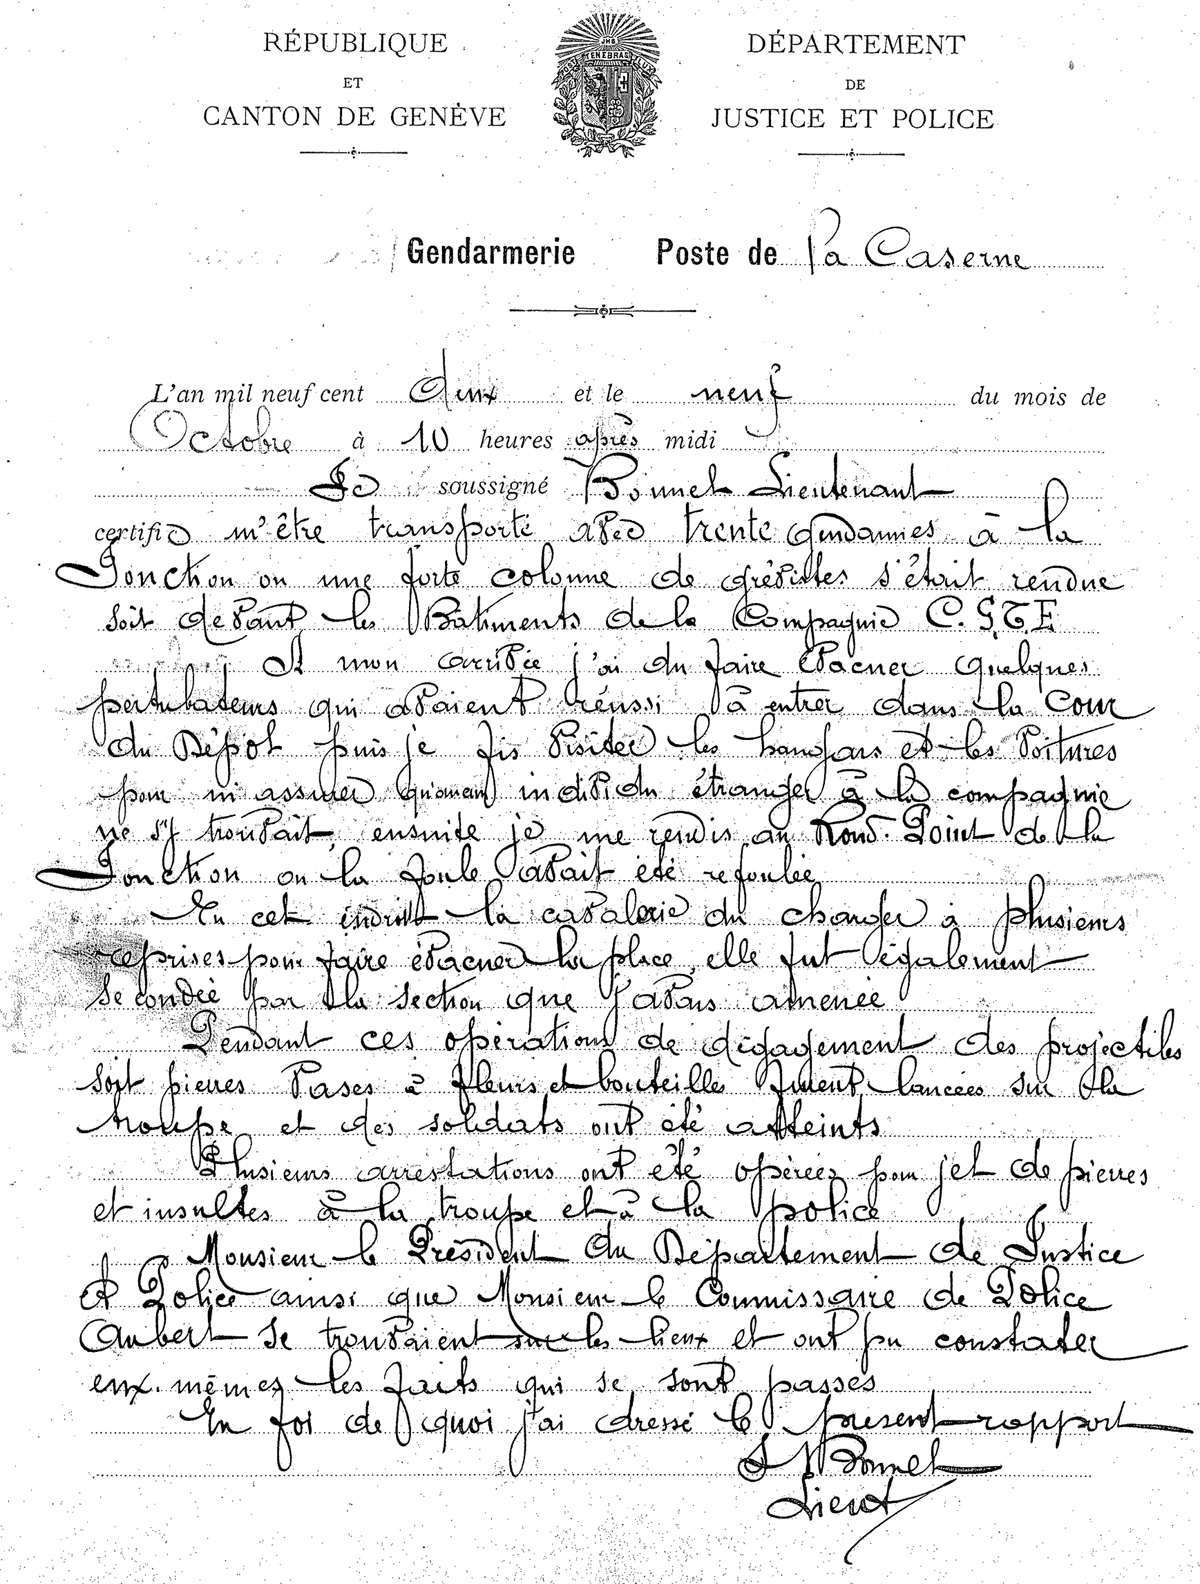 RÉPUBLIQUE
ET
CANTON DE GENÈVE
JHS
POST TENEBRAS LUX
DÉPARTEMENT
DE
JUSTICE ET POLICE
Gendarmerie Poste de la Caserne
L'an mil neuf cent deux et le neuf du mois de
Octobre à 10 heures après midi
Je soussigné Bonnet Lieutenant
certifie m'être transporté avec trente gendarmes à la
Jonction ou une forte colonne de grévistes s'était rendue
soit devant les Bâtiments de la Compagnie C.S.T.E
A mon arrivée j'ai du faire évacuer quelques
pertubateurs qui avaient réussi à entrer dans la cour
du Dépot puis je fis visiter les hangars et les voitures
pour m'assurer qu'aucun individu étranger à la compagnie
ne s'y trouvait, ensuite je me rendis au Rond-Point de la
Jonction ou la foule avait été refoulée
En cet endroit la cavalerie du charger à plusieurs
reprises pour faire évacuer la place, elle fut également
secondée par la section que j'avais amenée
Pendant ces opérations de dégagement des projectiles
soit pierres vases à fleurs et bouteilles furent lancées sur la
troupe et des soldats ont été atteints
Plusieurs arrestations ont été opérées pour jet de pierres
et insultes à la troupe et à la police
Monsieur le Président du Département de Justice
et Police ainsi que Monsieur le Commissaire de Police
Aubert se trouvaient sur les lieux et ont pu constater
eux-mêmes les faits qui se sont passés
En foi de quoi j'ai dressé le présent rapport
Bonnet
Lieut